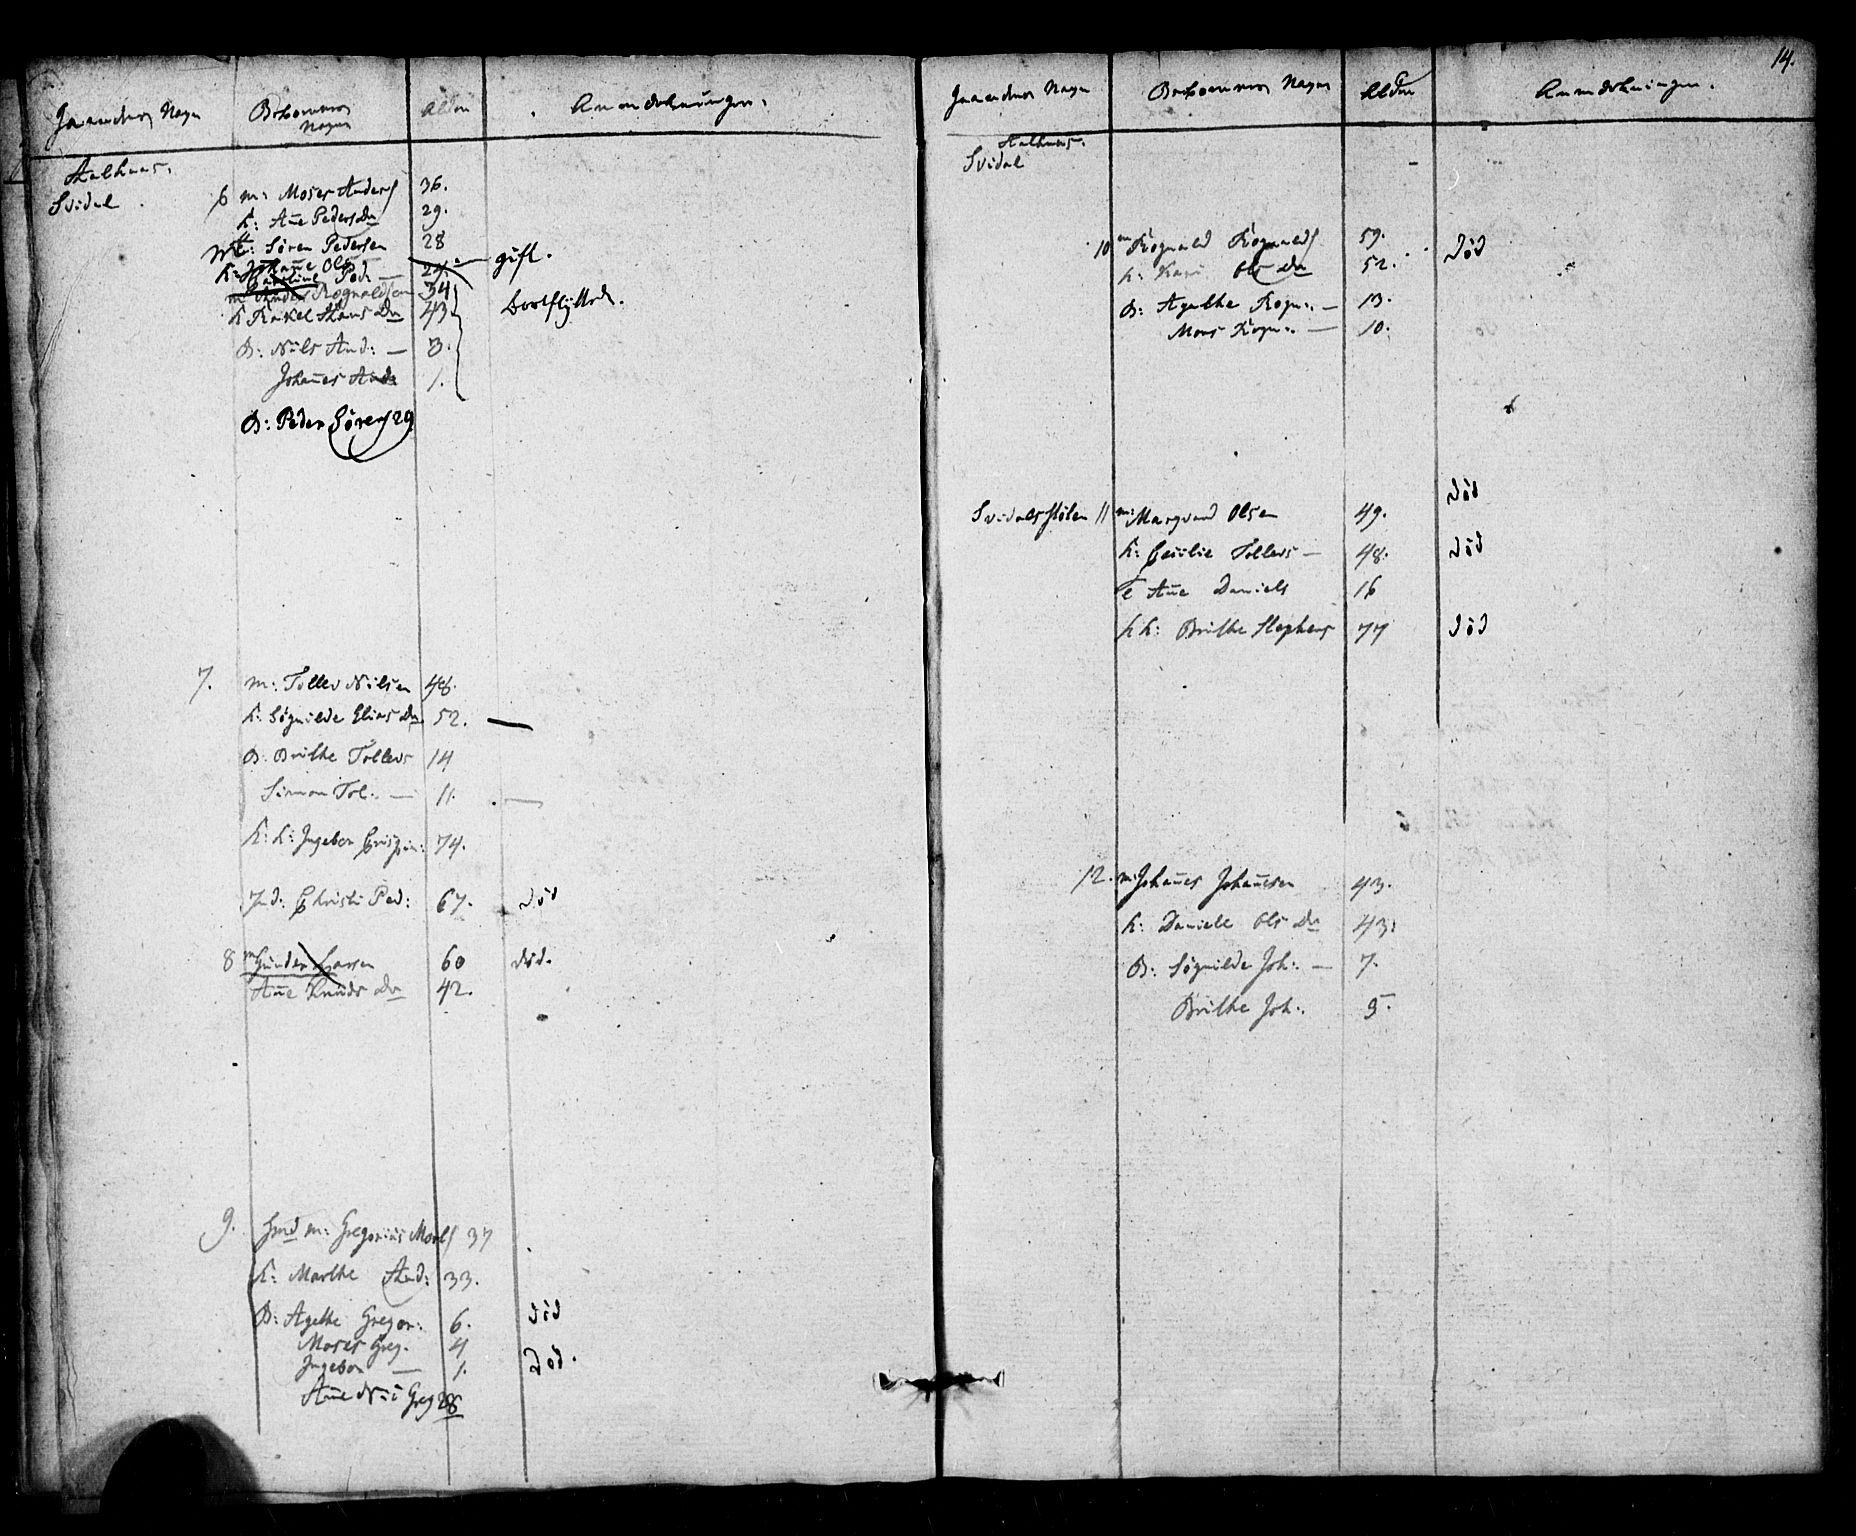 Gaardenes Navn
Beboernes Navne
Alder
Anmerkninger.
Aalhuus.
Svidal
6 m: Moses Anders 36.
k: Ane Pedersdr 29.
Søren Pedersen 28
k: Johane Ols 24. gift.
Karoline Ped: —
m Anders Rognaldsen 34 bortflyttede.
k Rakel Hans Dr 43
B: Nils And: — 3.
Johanes And: 1.
B: Peder Sørens 29
7. m: Tollev Nilsen 48.
k: Søgnilde Elias Dr 52. —
B. Brithe Tollevs 14
Simon Tol: — 11. —
k: k: Ingebor Crispin: 74.
Ind: Christi Ped: 67. død
8 m Gunder Larsen 60 død.
Ane Knuds Dr 42.
9. Hmd m: Gregorius Mons 37
k: Marthe And: 33.
B: Agethe Gregor: 6. død
Moses Greg. 4
Ingebor — 1. død.
Ane Greg 28
14.
Gaardenes Navn
Beboernes Navne
Alder
Anmerkninger.
Aalhuus.
Svidal
10 m Rognald Rognalds 59. død
k: Kari Ols Dr 52.
B: Agathe Rogn: — 13.
Mons Rogn: — 10.
død
Svidalsstølen 11 m: Marqvard Olsen 49.
k: Cecilie Tollevs — 48. død
Ane Daniels 16
k k: Brithe Stephens 77 død
12. m: Johanes Johanesen 43.
k: Daniele Ols Dr 43.
B: Søgnilde Joh: — 7.
Brithe Joh: 5.